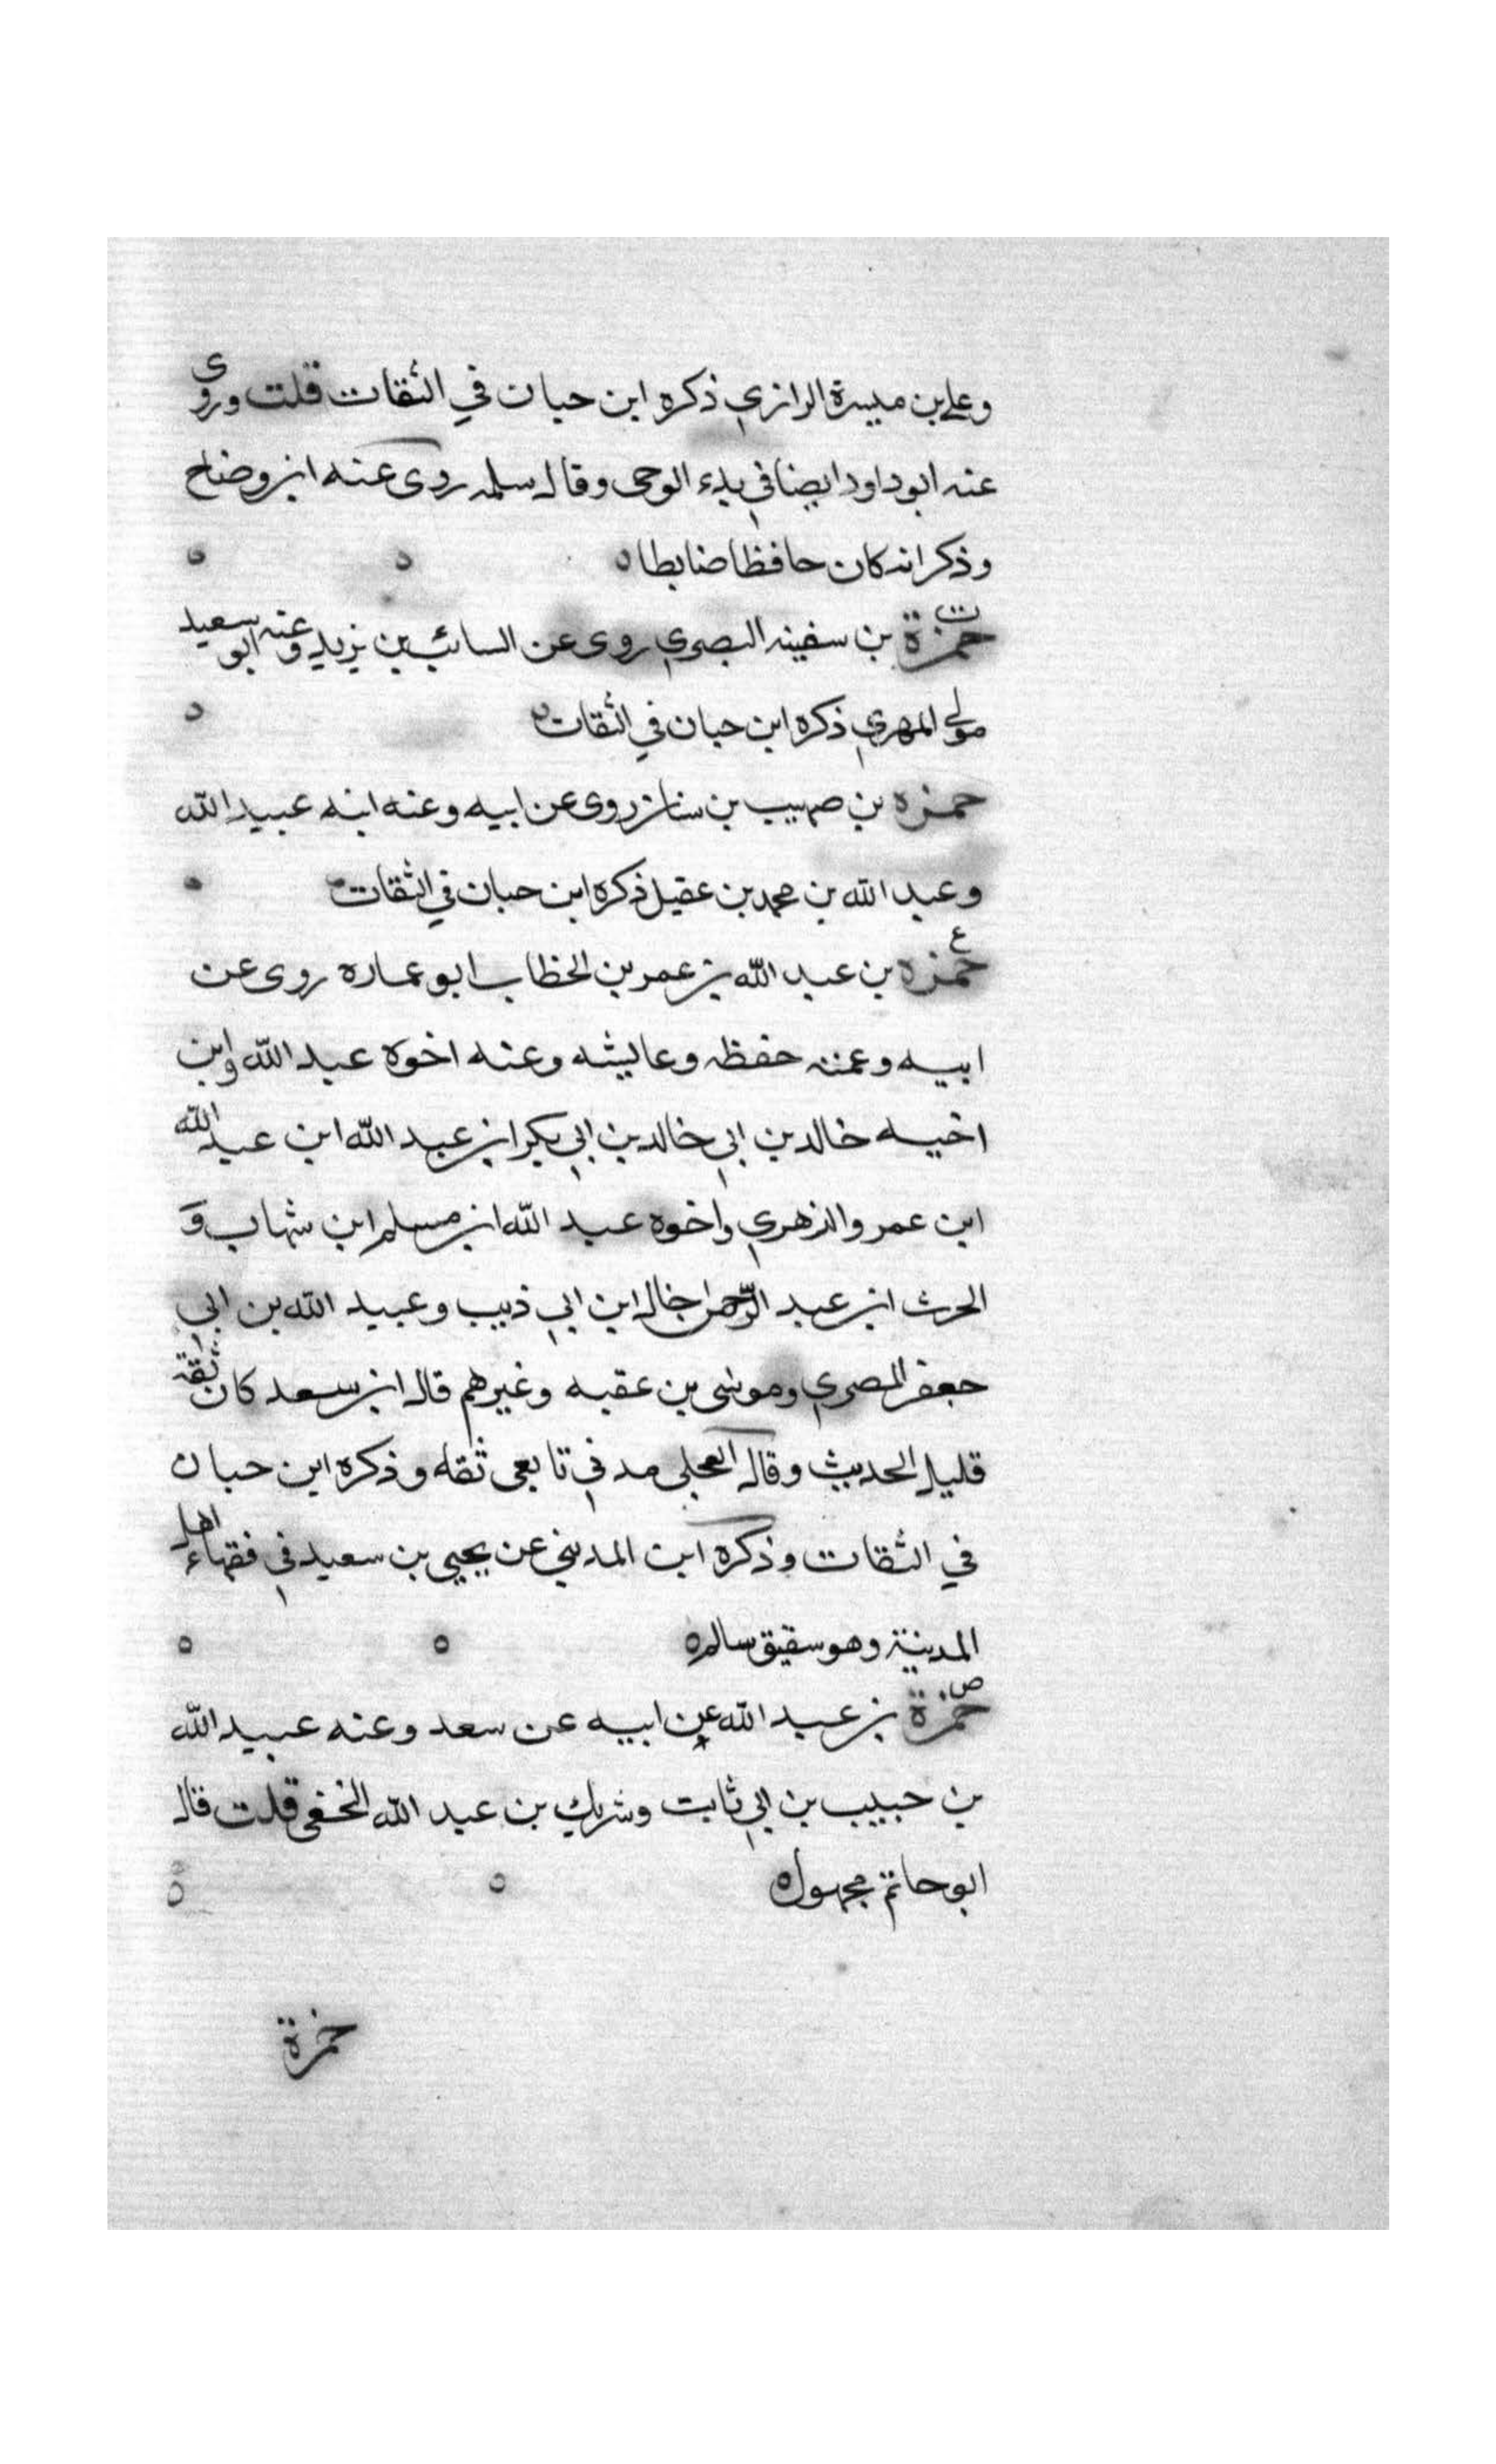 وعلي بن ميسرة الرازي ذكره ابن حبان في الثقات قلت وروى
عنه ابوداود ايضا في بدء الوحى وقال سلمه روى عنه ابن وضاح
وذكر انه كان حافظا ضابطا ه ه ه
ت
حمزة بن سفينه البصري روى عن السائب بن يزيد وعنه ابو سعيد
مولى المهري ذكره ابن حبان في الثقات ه
حمزه بن صهيب بن سنان روى عن ابيه وعنه ابنه عبيد الله
وعبد الله بن محمد بن عقيل ذكره ابن حبان في الثقات
ع
حمزه بن عبد الله بن عمر بن الخطاب ابو عماره روى عن
ابيه وعمته حفظه وعايشه وعنه اخوه عبد الله وابن
اخيه خالد بن ابي خالد بن ابي بكر ابن عبد الله ابن عبد الله
ابن عمر والزهري واخوه عبد الله ابن مسلم ابن شهاب و
الحرث ابن عبد الرحمن خال ابن ابي ذيب وعبيد الله بن ابي
جعفر المصري وموسى بن عقبه وغيرهم قال ابن سعد كان ثقة
قليل الحديث وقال العجلى مدني تابعى ثقه وذكره ابن حبان
في الثقات وذكره ابن المديني عن يحيى بن سعيد في فقهاء اهل
المدينة وهو سقيق سالم ه ه ه
ص
حمزة بن عبد الله عن ابيه عن سعد وعنه عبيد الله
بن حبيب بن ابي ثابت وشريك بن عبد الله النخعى قلت قال
ابو حاتم مجهول ه ه ه
حمزة